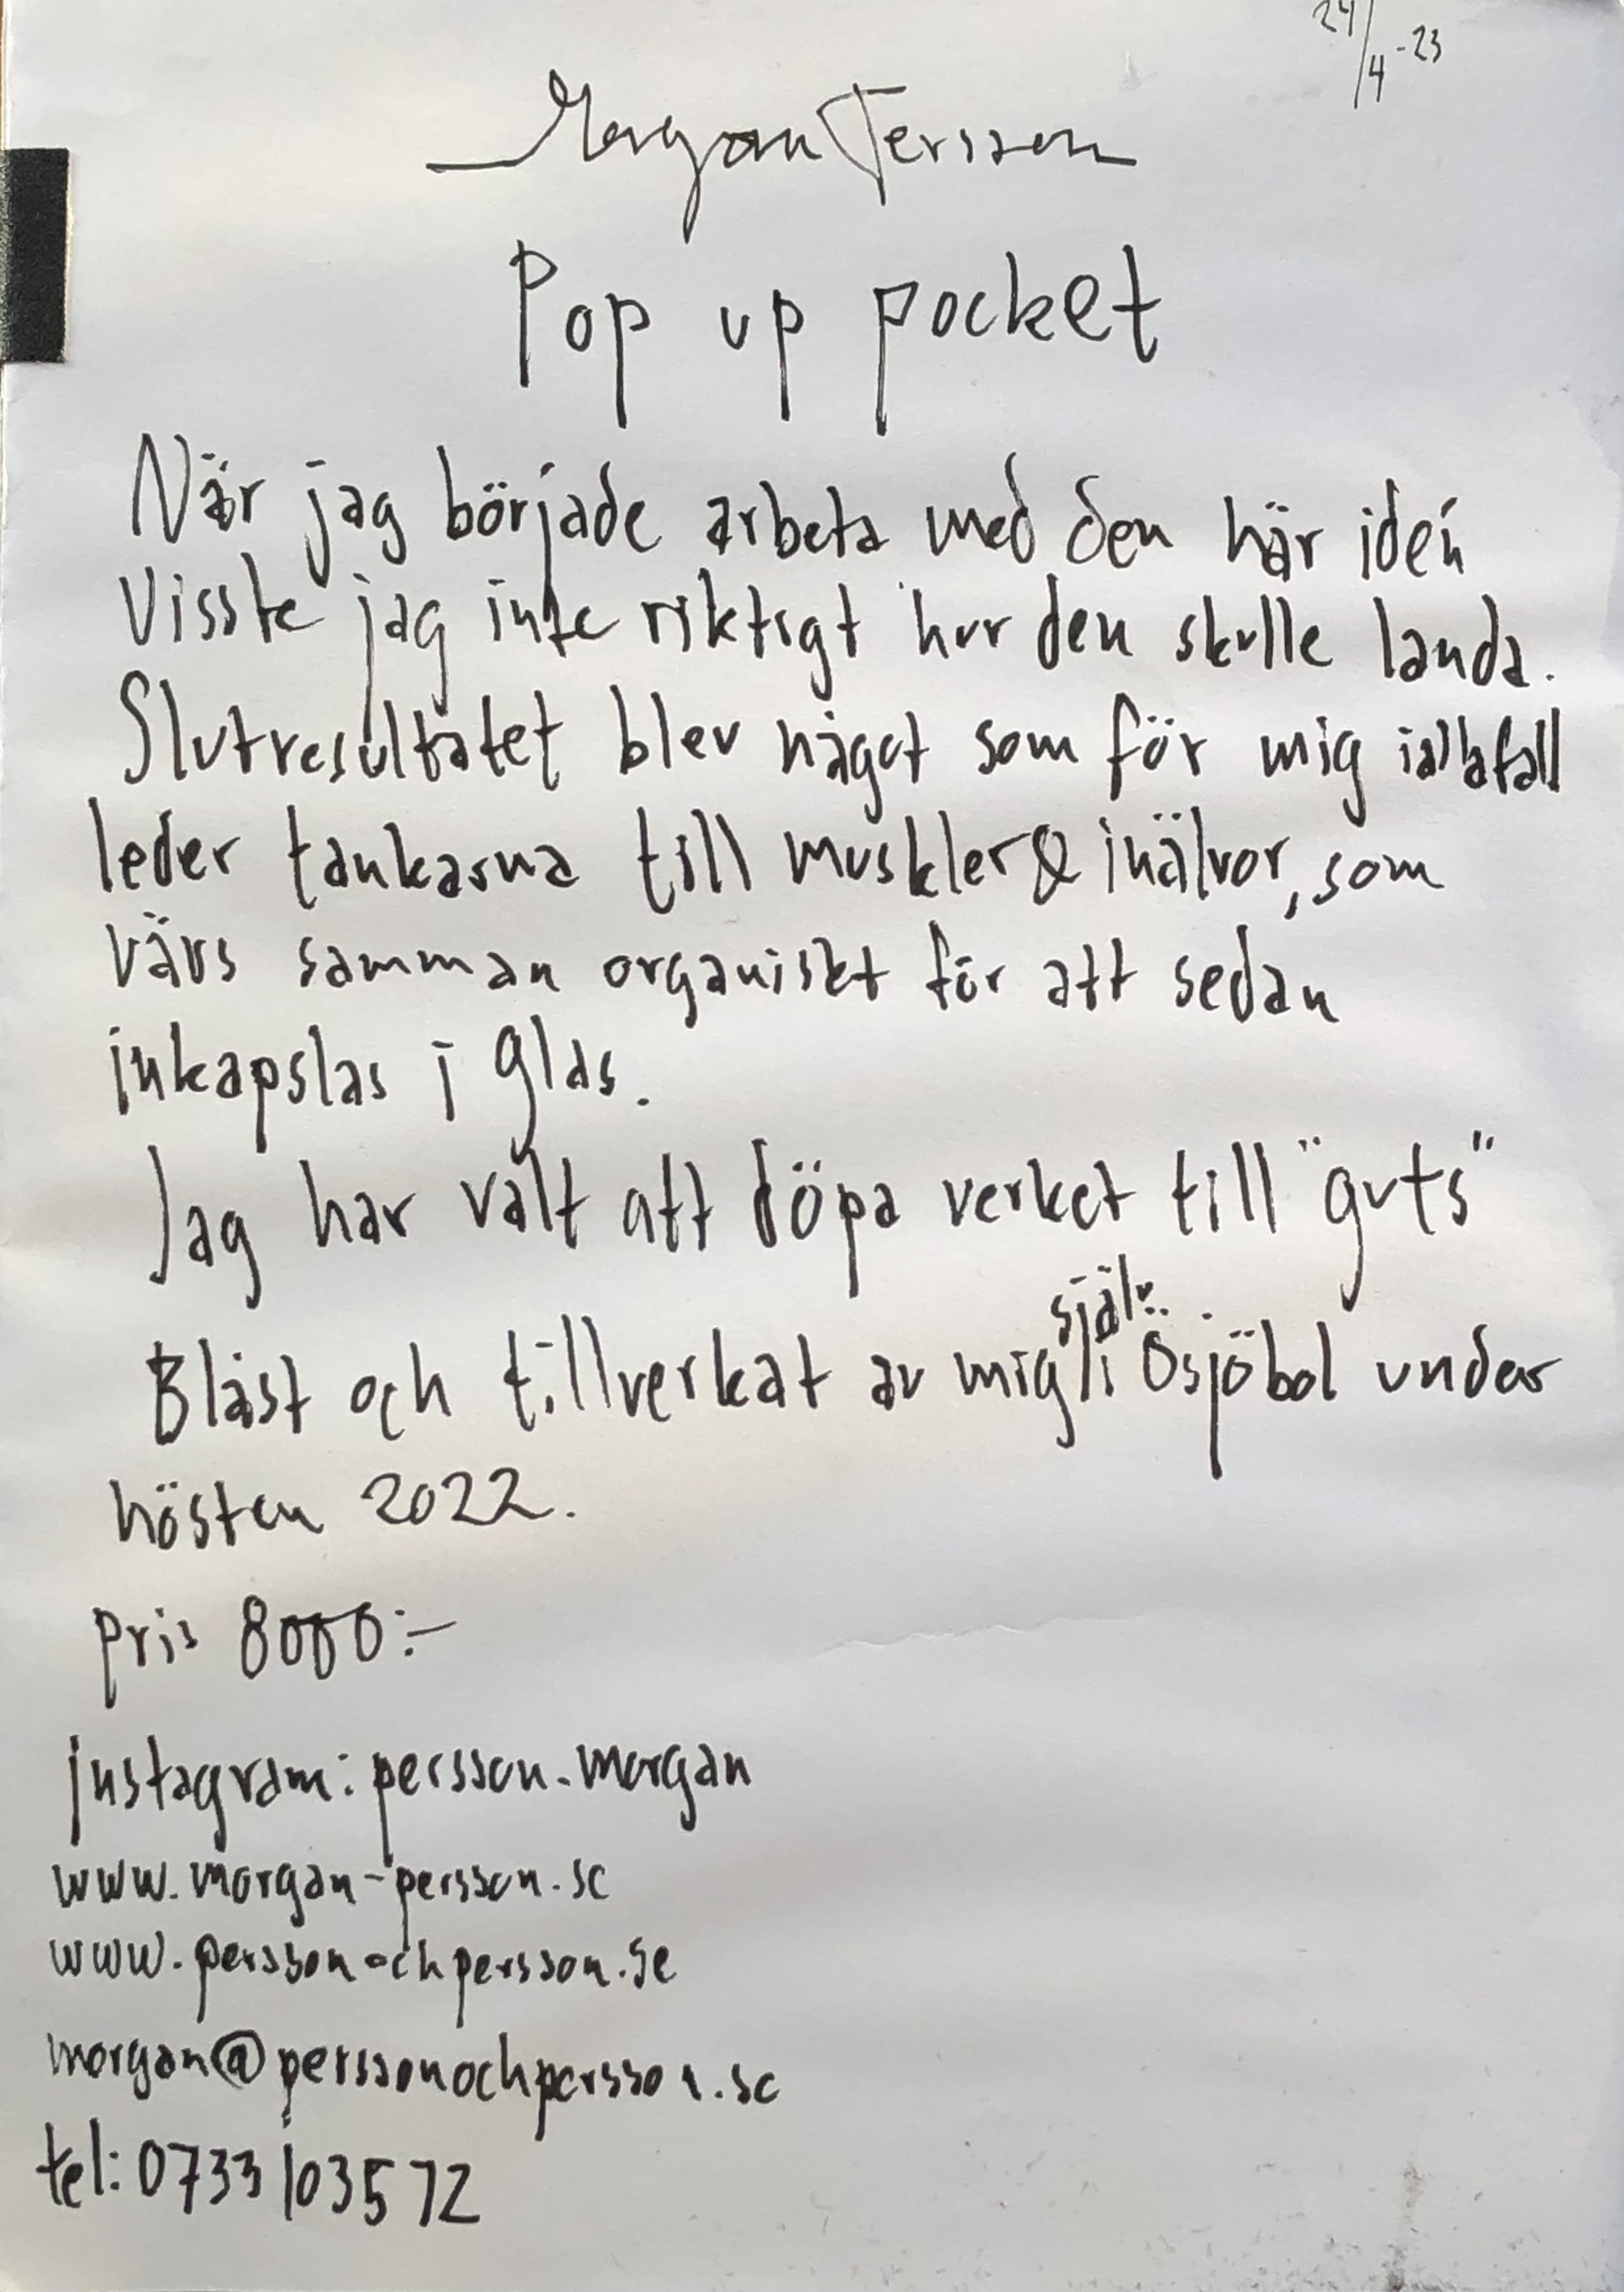 24/4-23
Morgan Persson
Pop up pocket
När jag började arbeta med den här idén
visste jag inte riktigt hur den skulle landa.
Slutresultatet blev något som för mig iallafall
leder tankarna till muskler & inälvor, som
vävs samman organiskt för att sedan
inkapslas i glas.
Jag har valt att döpa verket till "guts"
själv
Blåst och tillverkat av mig i Ösjöbol under
hösten 2022.
pris 8000:-
instagram: persson.morgan
www.morgan-persson.se
www.perssonochpersson.se
morgan@perssonochpersson.se
tel: 0733 103572